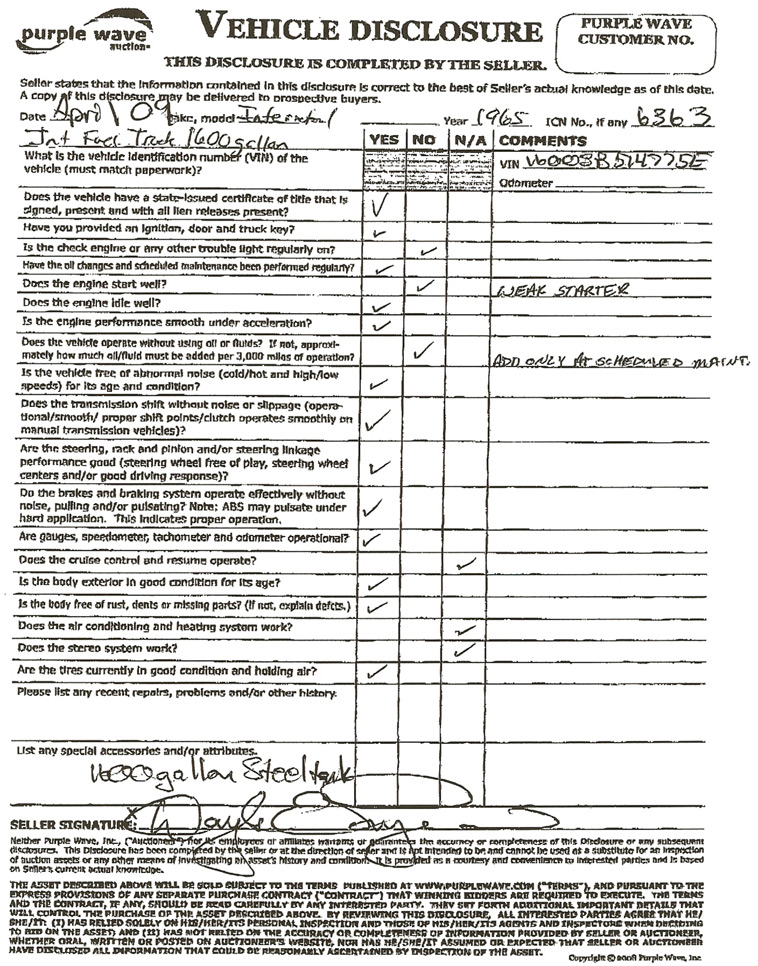 purple wave
auction
VEHICLE DISCLOSURE
PURPLE WAVE
CUSTOMER NO.
THIS DISCLOSURE IS COMPLETED BY THE SELLER.
Seller states that the information contained in this disclosure is correct to the best of Seller's actual knowledge as of this date.
A copy of this disclosure may be delivered to prospective buyers.
Date April 09 make, model Year 1965 ICN No., if any 6363
Int Fuel Truck 1600 gallon
YES NO N/A COMMENTS
What is the vehicle identification number (VIN) of the
vehicle (must match paperwork)?
VIN
Odometer
Does the vehicle have a state-issued certificate of title that is
signed, present and with all lien releases present?
Have you provided an ignition, door and truck key?
Is the check engine or any other trouble light regularly on?
Have the oil changes and scheduled maintenance been performed regularly?
Does the engine start well?
WEAK STARTER
Does the engine idle well?
Is the engine performance smooth under acceleration?
Does the vehicle operate without using oil or fluids? If not, approxi-
mately how much oil/fluid must be added per 3,000 miles of operation?
ADD ONLY AT SCHEDULED MAINT.
Is the vehicle free of abnormal noise (cold/hot and high/low
speeds) for its age and condition?
Does the transmission shift without noise or slippage (opera-
tional/smooth/ proper shift points/clutch operates smoothly on
manual transmission vehicles)?
Are the steering, rack and pinion and/or steering linkage
performance good (steering wheel free of play, steering wheel
centers and/or good driving response)?
Do the brakes and braking system operate effectively without
noise, pulling and/or pulsating? Note: ABS may pulsate under
hard application. This indicates proper operation.
Are gauges, speedometer, tachometer and odometer operational?
Does the cruise control and resume operate?
Is the body exterior in good condition for its age?
Is the body free of rust, dents or missing parts? (If not, explain defcts.)
Does the air conditioning and heating system work?
Does the stereo system work?
Are the tires currently in good condition and holding air?
Please list any recent repairs, problems and/or other history.
List any special accessories and/or attributes.
1600 gallon Steel tank
SELLER SIGNATURE:
Neither Purple Wave, Inc., ("Auctioneer") nor its employees or affiliates warrants or guarantees the accuracy or completeness of this Disclosure or any subsequent
disclosures. This Disclosure has been completed by the seller or at the direction of seller and is not intended to be and cannot be used as a substitute for an inspection
of auction assets or any other means of investigating an asset's history and condition. It is provided as a courtesy and convenience to interested parties and is based
on Seller's current actual knowledge.
THE ASSET DESCRIBED ABOVE WILL BE SOLD SUBJECT TO THE TERMS PUBLISHED AT WWW.PURPLEWAVE.COM ("TERMS"), AND PURSUANT TO THE
EXPRESS PROVISIONS OF ANY SEPARATE PURCHASE CONTRACT ("CONTRACT") THAT WINNING BIDDERS ARE REQUIRED TO EXECUTE. THE TERMS
AND THE CONTRACT, IF ANY, SHOULD BE READ CAREFULLY BY ANY INTERESTED PARTY. THEY SET FORTH ADDITIONAL IMPORTANT DETAILS THAT
WILL CONTROL THE PURCHASE OF THE ASSET DESCRIBED ABOVE. BY REVIEWING THIS DISCLOSURE, ALL INTERESTED PARTIES AGREE THAT HE/
SHE/IT: (I) HAS RELIED SOLELY ON HIS/HER/ITS PERSONAL INSPECTION AND THOSE OF HIS/HER/ITS AGENTS AND INSPECTORS WHEN DECIDING
TO BID ON THE ASSET; AND (II) HAS NOT RELIED ON THE ACCURACY OR COMPLETENESS OF INFORMATION PROVIDED BY SELLER OR AUCTIONEER,
WHETHER ORAL, WRITTEN OR POSTED ON AUCTIONEER'S WEBSITE, NOR HAS HE/SHE/IT ASSUMED OR EXPECTED THAT SELLER OR AUCTIONEER
HAVE DISCLOSED ALL INFORMATION THAT COULD BE REASONABLY ASCERTAINED BY INSPECTION OF THE ASSET.
Copyright © 2008 Purple Wave, Inc.